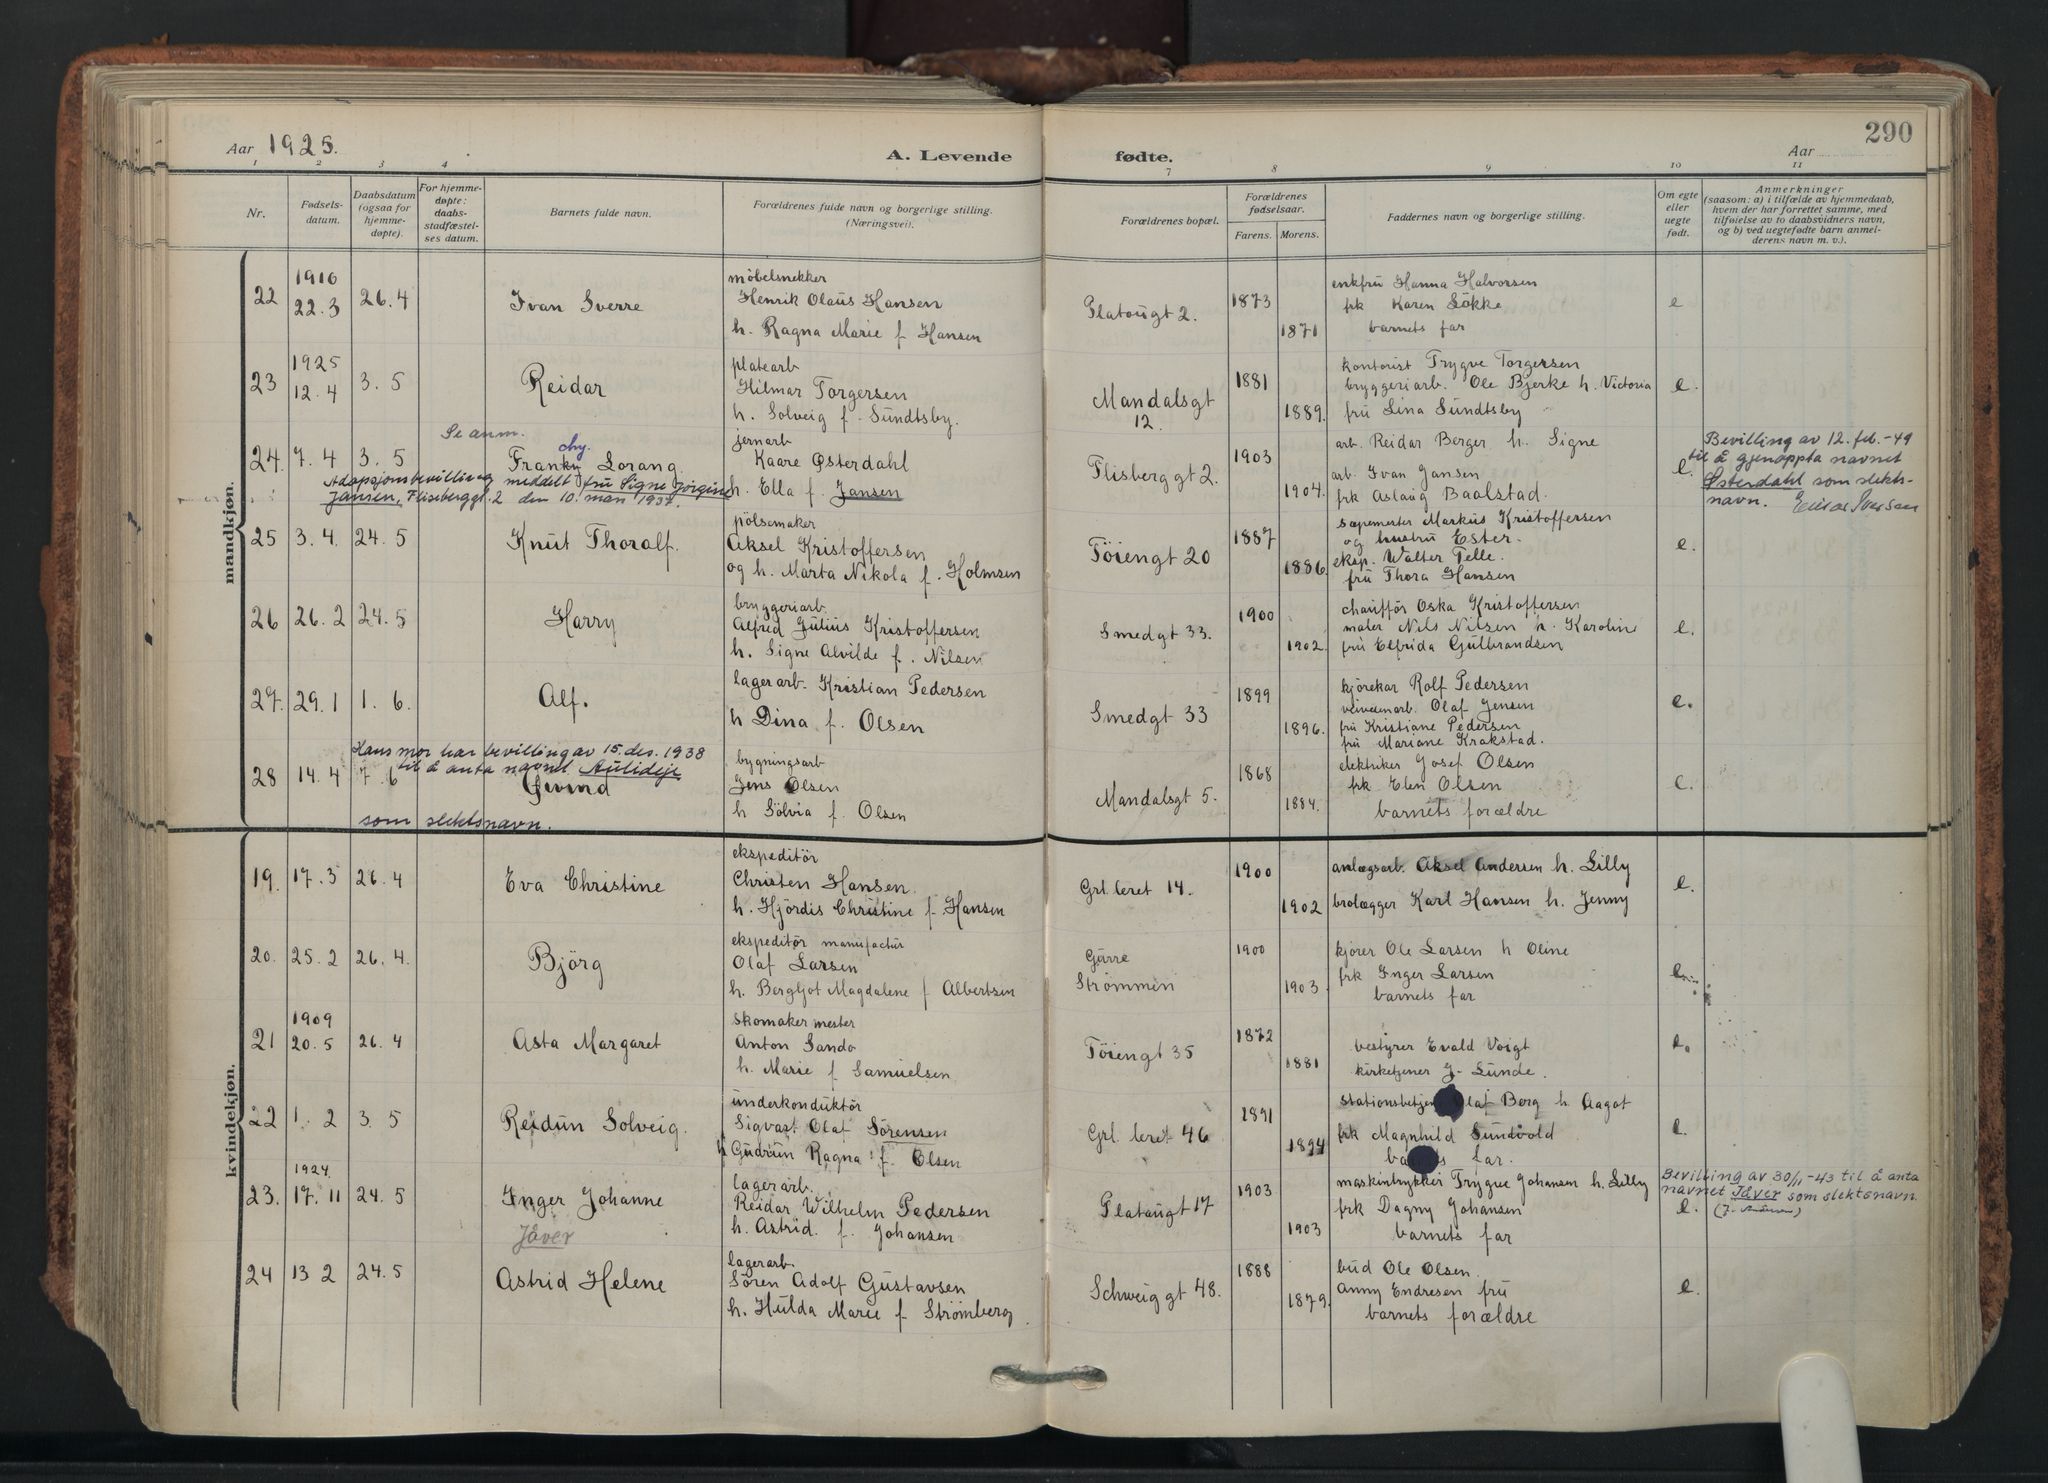 290
Aar 1925.
A. Levende fødte.
Aar
1 2 3 4 7 8 9 10 11
Nr.
Fødsels-
datum.
Daabsdatum
(ogsaa for
hjemme-
døpte).
For hjemme-
døpte:
daabs-
stadfæstel-
ses datum.
Barnets fulde navn.
Forældrenes fulde navn og borgerlige stilling.
(Næringsvei).
Forældrenes bopæl.
Forældrenes
fødselsaar.
Farens. Morens.
Faddernes navn og borgerlige stilling.
Om egte
eller
uegte
født.
Anmerkninger
(saasom: a) i tilfælde av hjemmedaab,
hvem der har forrettet samme, med
tilføielse av to daabsvidners navn,
og b) ved uegtefødte barn anmel-
derens navn m. v.).
mandkjøn.
22
1910
22.3
26.4
Ivan Sverre
möbelsnekker
Henrik Olaus Hansen
h. Ragna Marie f Hansen
Platougt 2.
1873
1871
enkfru Hanna Halvorsen
frk Karen Lökke
barnets far
e
23
1925
12.4
3.5
Reidar
platearb
Hilmar Torgersen
h. Solveig f. Sundtsby.
Mandalsgt
12.
1881
1889.
kontorist Trygve Torgersen
bryggeriarb. Ole Bjerke h. Victoria
fru Lina Sundtsby
e.
24.
7.4
3.5
Se anm.
Franky Lorang.
Adopsjonsbevilling meddelt fru Signe Jørgine
Jansen, Fliseberggt. 2 den 10. mars 1937.
jernarb
Kaare Østerdahl
h. Ella f. Jansen
Flisberggt 2.
1903
1904.
arb. Reidar Berger h. Signe
arb. Ivan Jansen
frk Aslaug Baalstad.
e.
Bevilling av 12. feb.-49
til å gjenoppta navnet
Østerdahl som slekts-
navn. Einar Iversen
25
3.4.
24.5
Knut Thoralf.
pölsemaker
Aksel Kristoffersen
og h. Marta Nikola f. Holmsen
Töiengt 20
1887
1886.
sæpemester Markus Kristoffersen
og hustru Ester.
eksp. Walter Telle.
fru Thora Hansen
e.
26
26.2
24.5
Harry
bryggeriarb.
Alfred Julius Kristoffersen
h. Signe Alvilde f. Nilsen
Smedgt 33.
1900
1902.
chaufför Oska Kristoffersen
maler Nils Nilsen h. Karoline
fru Elfrida Gulbrandsen
e.
27.
29.1
1.6.
Alf.
lagerarb. Kristian Pedersen
h Dina f. Olsen
Smedgt 33
1899
1896.
kjörekar Rolf Pedersen
veivesenarb. Olaf Jensen
fru Kristiane Pedersen
fru Mariane Krakstad.
e.
Hans mor har bevilling av 15. des. 1938
til å anta navnet Aulidije
som slektsnavn.
28
14.4
7.6
Øivind
bygningsarb
Jens Olsen
h Sölvia f. Olsen
Mandalsgt 5.
1868
1884.
elektriker Josef Olsen
frk Elen Olsen
barnets forældre
e.
kvindekjøn.
19.
17.3
26.4
Eva Christine
ekspeditör
Christen Hansen.
h. Hjördis Christine f. Hansen
Grl. leret 14.
1900
1902
anlægsarb. Aksel Andersen h. Lilly
brolægger Karl Hansen h. Jenny
e.
20.
25.2
26.4.
Björg
ekspeditör manufactur
Olaf Larsen
h. Bergljot Magdalene f Albertsen
Strømmen
1900
1903.
kjörer Ole Larsen h Oline
frk Inger Larsen
barnets far
21
1909
20.5
26.4
Asta Margaret
skomaker mester
Anton Sando
h. Marie f Samuelsen
Töiengt 35
1872
1881
bestyrer Evald Voigt
kirketjener J. Lunde.
e.
22
1.2
3.5
Reidun Solveig.
underkonduktör
Sigvart Olaf Sörensen
h Gudrun Ragna f. Olsen
Grl. leret 46
1891
1894
stationsbetjen Olaf Berg h Aagot
frk Magnhild Sundvold
barnets far.
e.
23.
1924
17.11
24.5
Inger Johanne
Jåver
lagerarb.
Reidar Wilhelm Pedersen
h. Astrid f. Johansen
Platougt 17
1903
1903
maskintrykker Trygve Johansen h. Lilly
frk Dagny Johansen
barnets far
e.
Bevilling av 30/11-43 til å anta
navnet Jåver som slektsnavn.
24
13 2
24.5
Astrid Helene
lagerarb.
Sören Adolf Gustavsen
h. Hulda Marie f Strömberg
Schweiggt 48.
1888
1879.
bud Ole Olsen.
Anny Endresen fru
barnets forældre
e.